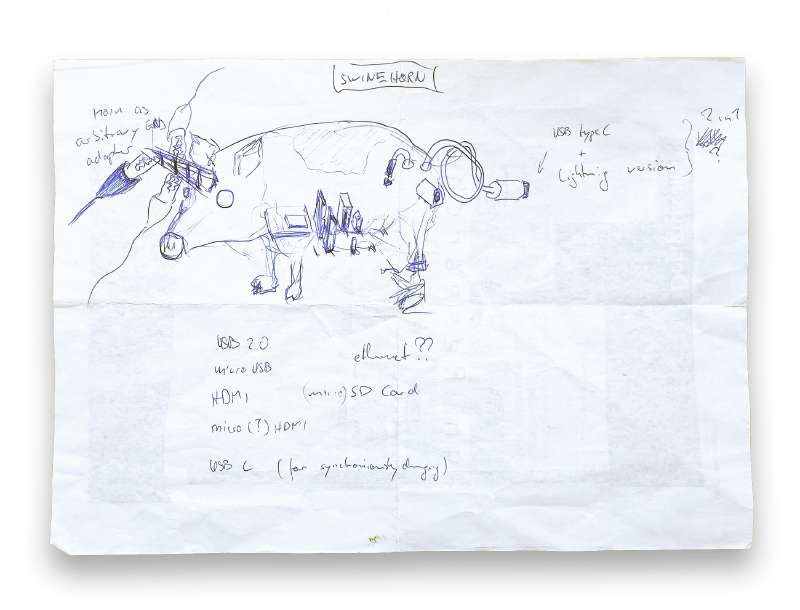 SWINEHORN
Horn as
arbitrary GND
adapter
USB type C
+
Lightning version
2 in 1
?
USB 2.0
micro USB
HDMI
micro (?) HDMI
USB C (for
ethernet??
(micro) SD Card